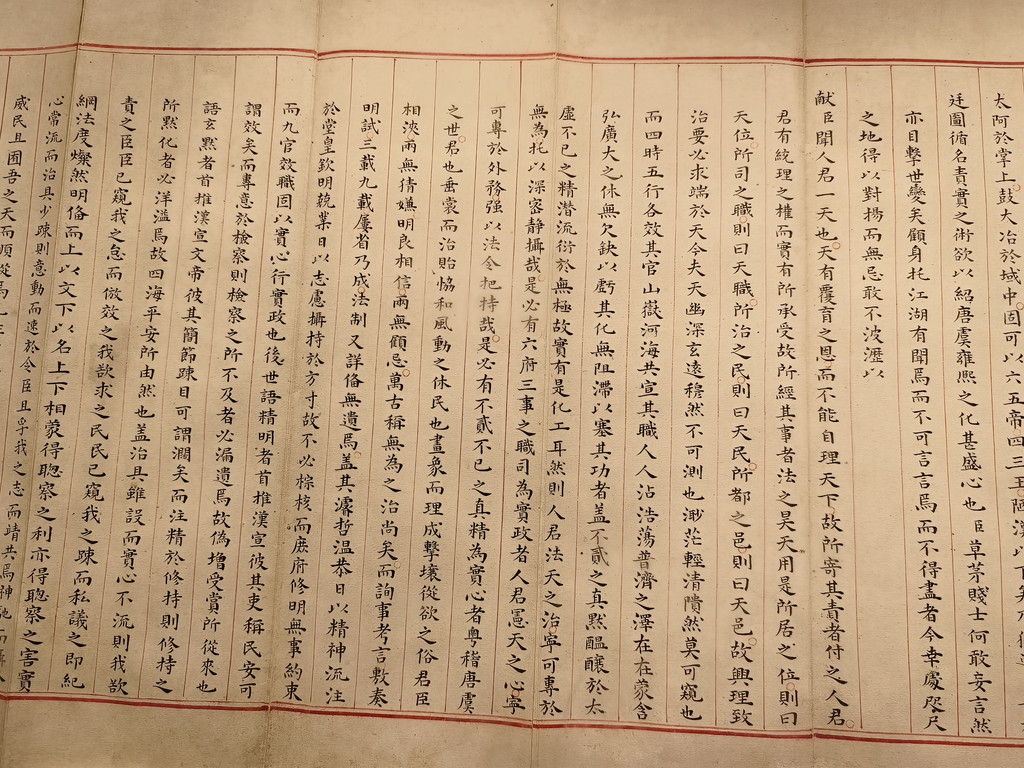 太阿於掌上鼓大冶於域中固可以六五帝四三王陋漢以下矣
廷圖循名責實之術欲以紹唐虞雍熙之化甚盛心也臣草茅賤士何敢妄言然
亦目擊世變矣顧身托江湖有聞焉而不可言言焉而不得盡者今幸處咫尺
之地得以對揚而無忌敢不披瀝以
献臣聞人君一天也天有覆育之恩而不能自理天下故所寄其責者付之人君
君有統理之權而實有所承受故所經其事者法之昊天用是所居之位則曰
天位所司之職則曰天職所治之民則曰天民所都之邑則曰天邑故興理致
治要必求端於天今夫天幽深玄遠穆然不可測也渺茫輕清隤然莫可窺也
而四時五行各效其官山嶽河海共宣其職人人沾浩蕩普濟之澤在在蒙含
弘廣大之休無欠缺以虧其化無阻滯以塞其功者蓋不貳之真默醞釀於太
虛不已之精潛流衍於無極故實有是化工耳然則人君法天之治寧可專於
無為托以深密静攝哉是必有六府三事之職司為實政者人君憲天之心寧
可專於外務强以法令把持哉是必有不貳不已之真精為實心者粤稽唐虞
之世君也垂裳而治貽恊和風動之休民也畫象而理成擊壤從欲之俗君臣
相浹兩無猜嫌明良相信兩無顧忌萬古稱無為之治尚矣而詢事考言敷奏
明試三載九載屢省乃成法制又詳俻無遺焉盖其濬哲温恭日以精神流注
於堂皇欽明兢業日以志慮攡持於方寸故不必綜核而庶府修明無事約束
而九官效職固以實心行實政也後世語精明者首推漢宣彼其吏稱民安可
謂效矣而專意於檢察則檢察之所不及者必漏遺焉故偽增受賞所從來也
語玄默者首推漢宣文帝彼其簡節疎目可謂濶矣而注精於修持則修持之
所默化者必洋溢焉故四海平安所由然也盖治具雖設而實心不流則我欲
責之臣臣已窺我之怠而倣效之我欲求之民民已窺我之疎而私議之即紀
綱法度燦然明俻而上以文下以名上下相蒙得聰察之利亦得聰察之害實
心常流而治具少疎則意動而速於令臣且孚我之志而靖共焉神馳而
威民且囿吾之天而順從焉